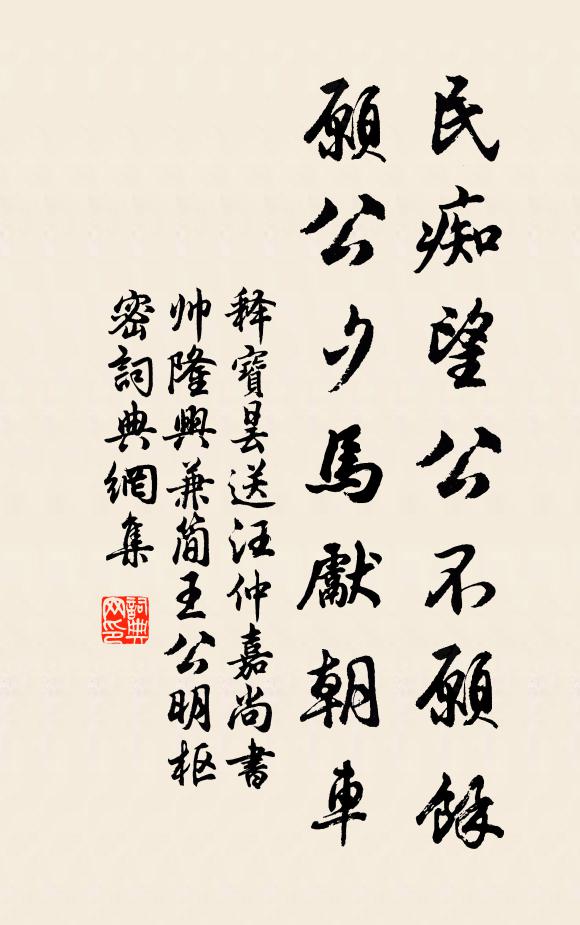 民痴望公不願餘
願公夕馬獻朝車
释寶曇送汪仲嘉尚書
帅隆興兼简王公明枢
密詞典網集
詞典网印